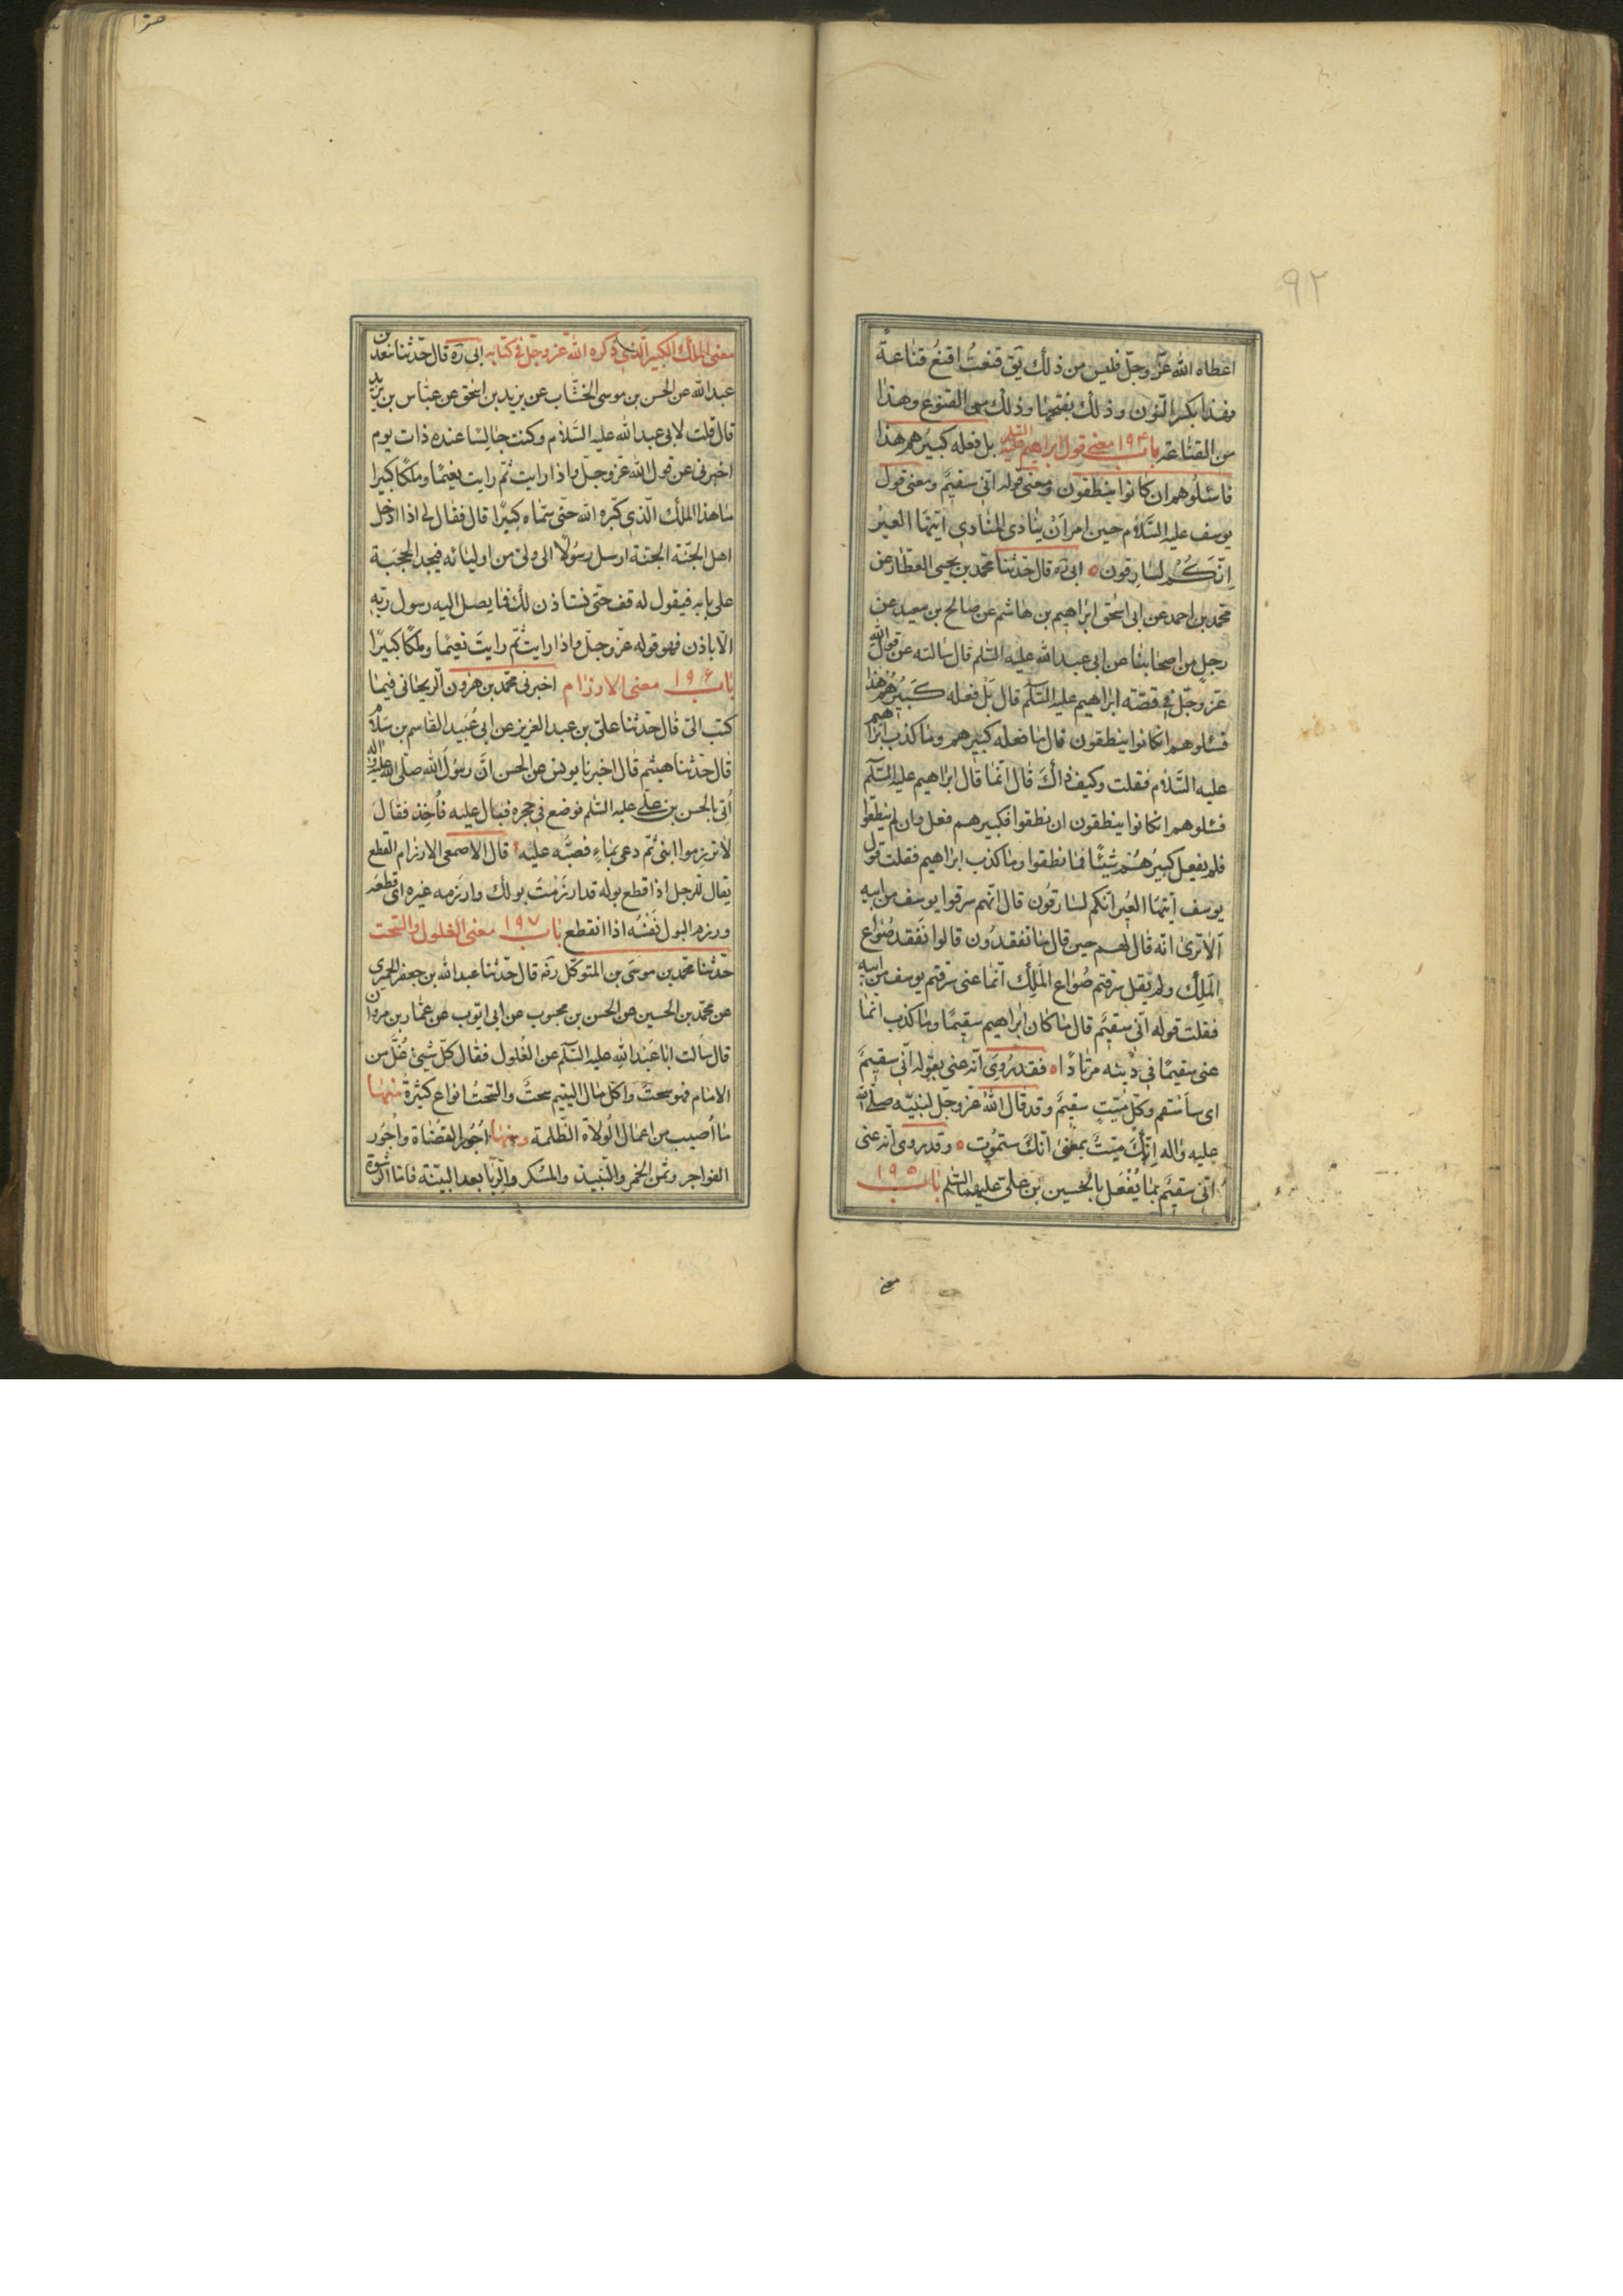 ٩٢
اعطاه الله عزّ وجلّ فليس من ذلك يق قنعتُ اقنعُ قناعةً
فهذا بكسر النّون وذلك بفتحها وذلك من القنوع وهذا
من القناعة باب ١٩۴ معنى قول ابراهيم عليه السّلم بل فعله كبيرهم هذا
فاسئلوهم ان كانوا ينطقون ومعنى قوله انّى سقيمٌ ومعنى قول
يوسف عليه السّلام حين امر ان ينادى المنادى ايّتها العيرُ
اِنّكُم لسارقون ابى ره قال حدّثنا محمد بن يحيى العطّار عن
محمّد بن احمد عن ابى اسحق ابراهيم بن هاشم عن صالح بن سعيد عن
رجلٍ من اصحابنا عن ابى عبد الله عليه السّلم قال سالته عن قول الله
عزّ وجلّ فى قصّة ابراهيم عليه السّلم قال بَلْ فعله كَبيرُهُم هذا
فسئلوهم انكانوا ينطقون قال ما فعله كبيرهم وما كذب ابراهيم
عليه السّلام فقلت وكيف ذاك قال انّما قال ابراهيم عليه السّلم
فسئلوهم انكانوا ينطقون ان نطقوا فكبيرهم فعل وان لم ينطقوا
فلم يفعل كبيرُهُم شيئًا فما نطقوا وما كذب ابراهيم فقلت قول
يوسف ايّتها العير انّكم لسارقون قال انّهم سرقوا يوسف من ابيه
الا ترى انّه قال لهم حين قال ما تفقدون قالوا نفقد صُواع
الملِك ولم يقل سرقتم صُواع الملِك انّما عنى سرقتم يوسف من ابيه
فقلت قوله انّى سقيمٌ قال ما كان ابراهيم سقيمًا وما كذب انّما
عنى سقيمًا فى دينه مرتادًا فقد رُوِىَ انّه عنى بقوله انّى سقيمٌ
اى ساَسْقم وكلّ ميّتٍ سقيمٌ وقد قال الله عزّ وجلّ لنبيّه صلّى الله
عليه واله اِنّكَ ميّتٌ بمعنى انّكَ ستموت وقد روى انّه عنى
انّى سقيمٌ بما يُفْعَل بالحسين بن علىّ عليهما السّلم باب ١٩٥
معنى
معنى الملك الكبير الّذى ذكره الله عزّ وجلّ فى كتابه ابى ره قال حدّثنا سعد بن
عبد الله عن الحسن بن موسى الخشّاب عن يزيد بن اسحق عن عبّاس بن يزيد
قال قلت لابى عبد الله عليه السّلام وكنت جالسًا عنده ذات يوم
اخبرنى عن قول الله عزّ وجلّ واذا رايت ثمّ رايت نعيمًا وملكًا كبيرا
ما هذا الملك الّذى كبّره الله حتّى سمّاه كبيرًا قال فقال لى اذا ادخل
اهل الجنّة الجنّة ارسل رسُولًا الى ولىّ من اوليائه فيجد الحجبة
على بابه فيقول له قف حتّى نستاذن لك فما يصل اليه رسول ربّه
الّا باذن فهو قوله عزّ وجلّ واذا رايت ثمّ رايتَ نعيمًا وملكًا كبيرًا
باب ١٩۶ معنى الارزام اخبرنى محمّد بن هرون الزنجانى فيما
كتب الىّ قال حدّثنا علىّ بن عبد العزيز عن ابى عُبيد القاسم بن سلّام
قال حدّثنا هيثم قال اخبرنا يونس عن الحسن انّ رسول الله صلّى الله عليه واله
اُتى بالحسن بن علىّ عليه السّلم فوضع فى حجره فبال عليه فاُخِذ فقالَ
لا تزرموا ابنى ثمّ دعى بماءٍ فصبّه عليه قال الاصمعى الارزام القطع
يقال للرجل اذا قطع بوله قد ازرَمْتَ بولك وازرمه غيره اى قطعه
وزرم البول نَفْسُه اذا انقطع باب ١٩٧ معنى الغلول والسّحت
حدّثنا محمّد بن موسى بن المتوكّل ره قال حدّثنا عبد الله بن جعفر الحميرى
عن محمّد بن الحسين عن الحسن بن محبوب عن ابى ايّوب عن عمّار بن مروان
قال سالت ابا عبد الله عليه السّلم عن الغُلول فقال كلّ شيئ غُلّ من
الامام فهو سحتٌ واكل مال اليتيم سحتٌ والسّحتُ انواع كثيرةٌ منها
ما اُصيب من اعمال الوُلاة الظّلمة ومنها اُجُور القضاة واُجُور
الفواجر وثمن الخمر والنّبيذ والمسكر والرّبا بعد البيّنة فامّا الرشوة